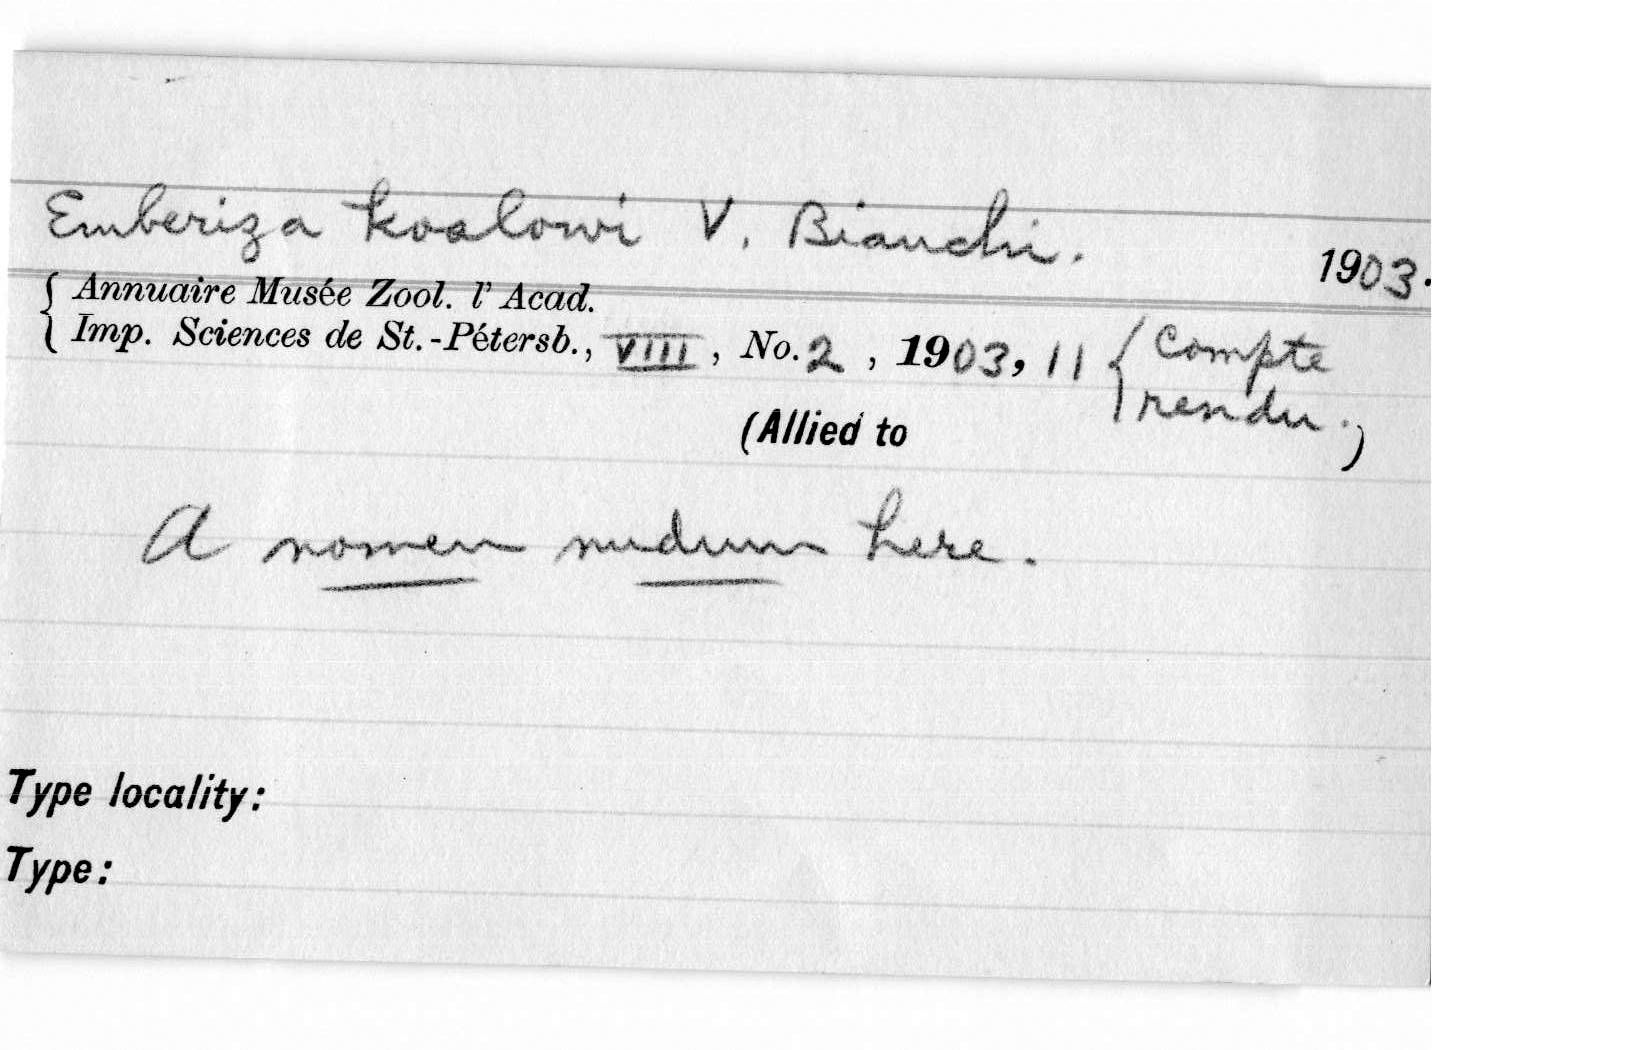 Emberiza koslowi V. Bianchi. 1903.
Annuaire Musée Zool. l' Acad.
Imp. Sciences de St.-Pétersb., VIII, No. 2, 1903, 11 { Compte
rendu.
(Allied to )
A nomen nudum here.
Type locality:
Type: